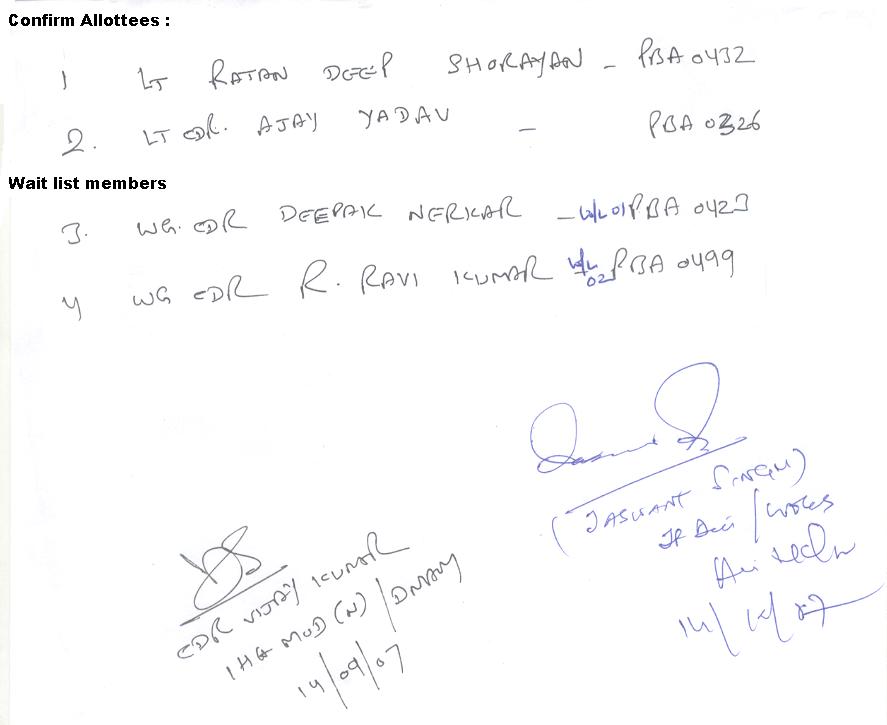 Confirm Allottees :
1 LT RATAN DEEP SHORAYAN - PBA 0432
2. LT CDR. AJAY YADAV - PBA 0326
Wait list members
3. WG. CDR DEEPAK NERKAR - W/L 01 PBA 0423
4 WG CDR R. RAVI KUMAR W/L 02 PBA 0499
(JASWANT SINGH)
/ WORKS
CDR VIJAY KUMAR
IHQ MOD (N) / DNAM
14/09/07